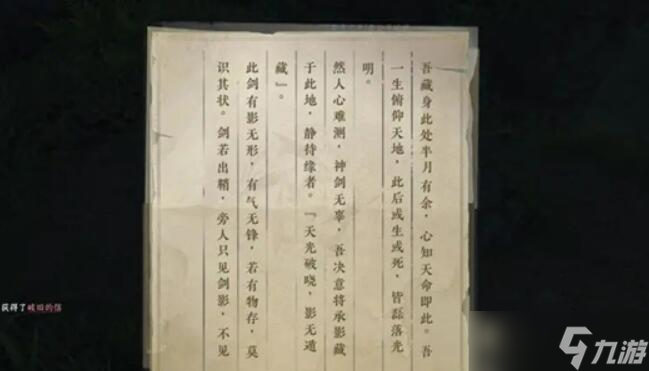 吾藏身此处半月有余，心知天命即此。吾
一生俯仰天地，此后或生或死，皆磊落光
明。
然人心难测，神剑无辜，吾决意将承影藏
于此地，静待缘者。『天光破晓，影无遁
藏』。
此剑有影无形，有气无锋，若有物存，莫
识其状。剑若出鞘，旁人只见剑影，不见
获得了破旧的信
九游